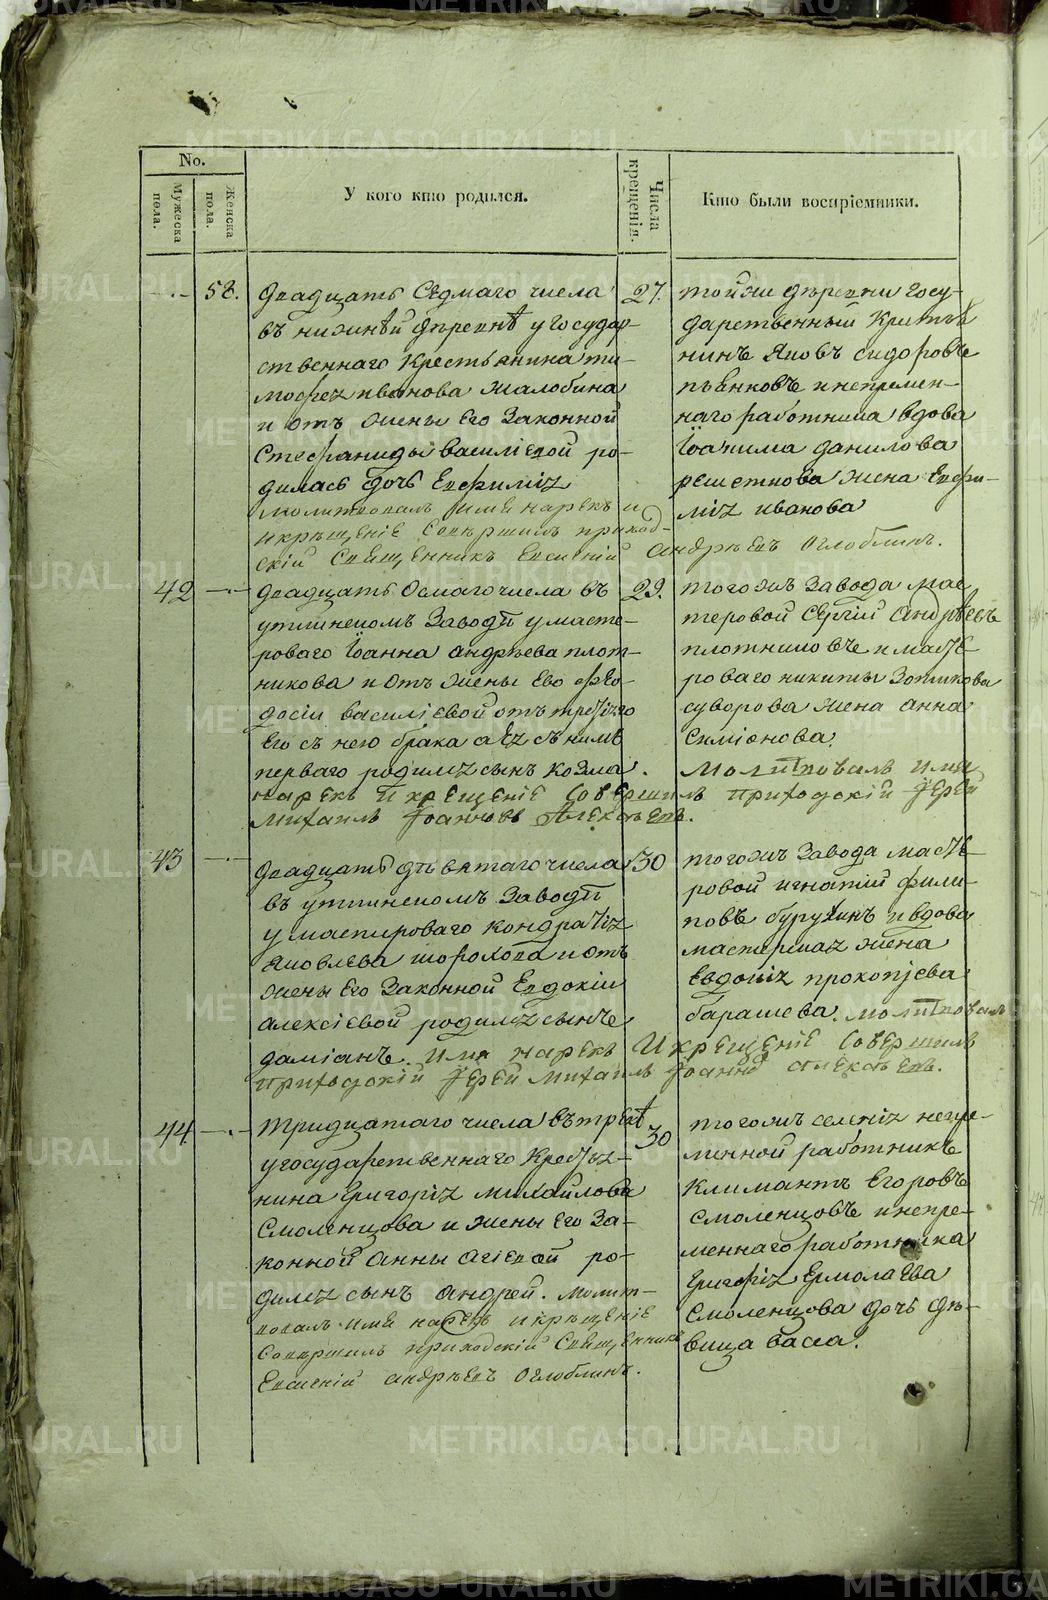 No.
Мужеска пола.
Женска пола.
У кого кто родился.
Числа крещенія.
Кто были воспріемники.
58.
двадцать Седмаго числа
въ нижнѣй дѣревнѣ у государ-
ственнаго Крестьянина ти-
мофея иванова жалобина
и отъ жены Его Законной
Стефаниды василіевой ро-
дилась дочь Евфимія
молитвовалъ имя нарекъ и
и крѣщеніе Совѣршилъ приход-
скій Свящѣнникъ Евгеній андрѣевъ Оглоблинъ.
27.
тойже дѣревни госу-
дарственный Крестья
нинъ Яковъ сидоровъ
пьянковъ и непремен-
наго работника вдова
Іоакима данилова
решетнова жена Евфи-
мія иванова
42
двадцать Осмаго числа въ
уткинскомъ Заводѣ у масте-
роваго Іоанна андрѣева плот-
никова и отъ жены Ево Фѣо-
досіи василіевой отъ третіяго
Его съ нею брака а Ея съ нимъ
перваго родился сынъ Козма.
нарекъ и крещеніе Совершилъ приходскій Іерей
Михаилъ Іоанновъ Алексѣевъ.
29.
тогожъ Завода мас
теровой Сергій Андрѣевъ
плотниковъ и масте
роваго никиты Зотикова
суворова жена анна
Симіонова.
Молитвовалъ имя
43
двадцать дѣвятаго числа
въ уткинскомъ Заводѣ
у мастероваго Кондратія
Яковлева шорохова и отъ
жены Его Законной Евдокіи
алексіевой родился сынъ
даміанъ. имя нарекъ И крещеніе Совершилъ
приходскій Іерей Михаилъ Іоаннъ алексѣевъ.
30
тогожъ Завода масте
ровой игнатій фили-
повъ бурухинъ и вдова
мастерская жена
Евдокія прокопіева
барашева. молитвовалъ
44.
тридцатаго числа въ
у государственнаго Крестья-
нина Григорія михайлова
Смоленцова и жены Его За-
конной Анны Агіевой ро-
дился сынъ андрей. молит-
вовалъ имя нарекъ и крѣщеніе
Совѣршилъ приходскій Свящѣнникъ
Евгеній андрѣевъ Оглоблинъ.
30
тогожъ селенія непре-
менной работникъ
Климантъ Егоровъ
Смоленцовъ и непре-
меннаго работника
Григорія Ермолаева
Смоленцова дочь дѣ-
вица васса.
METRIKI.GASO-URAL.RU